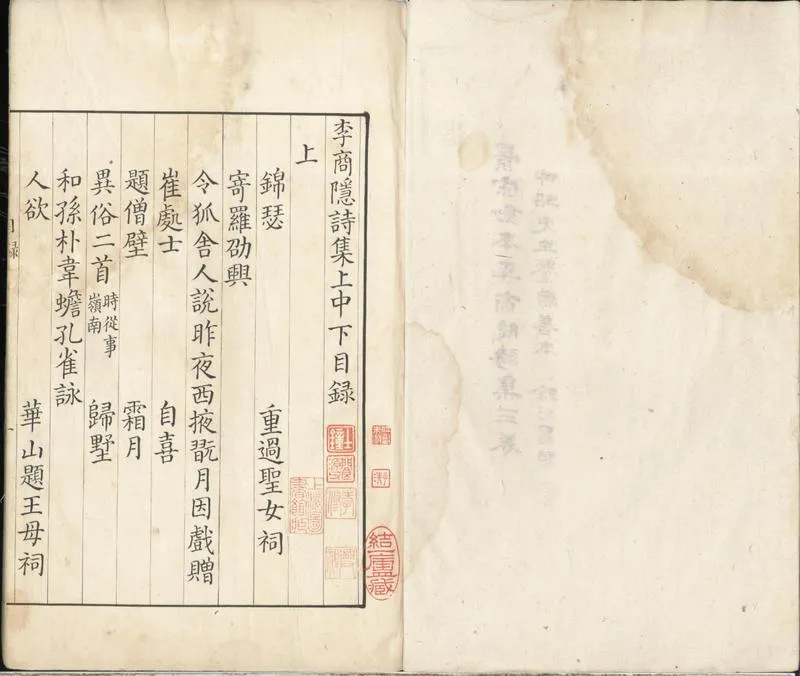 李商隱詩集上中下目録
上
錦瑟 重過聖女祠
寄羅劭興
令狐舍人說昨夜西掖翫月因戲贈
崔處士 自喜
題僧壁 霜月
異俗二首 時從事嶺南 歸墅
和孫朴韋蟾孔雀詠
人欲 華山題王母祠
目録
結一廬藏
上海圖書館藏